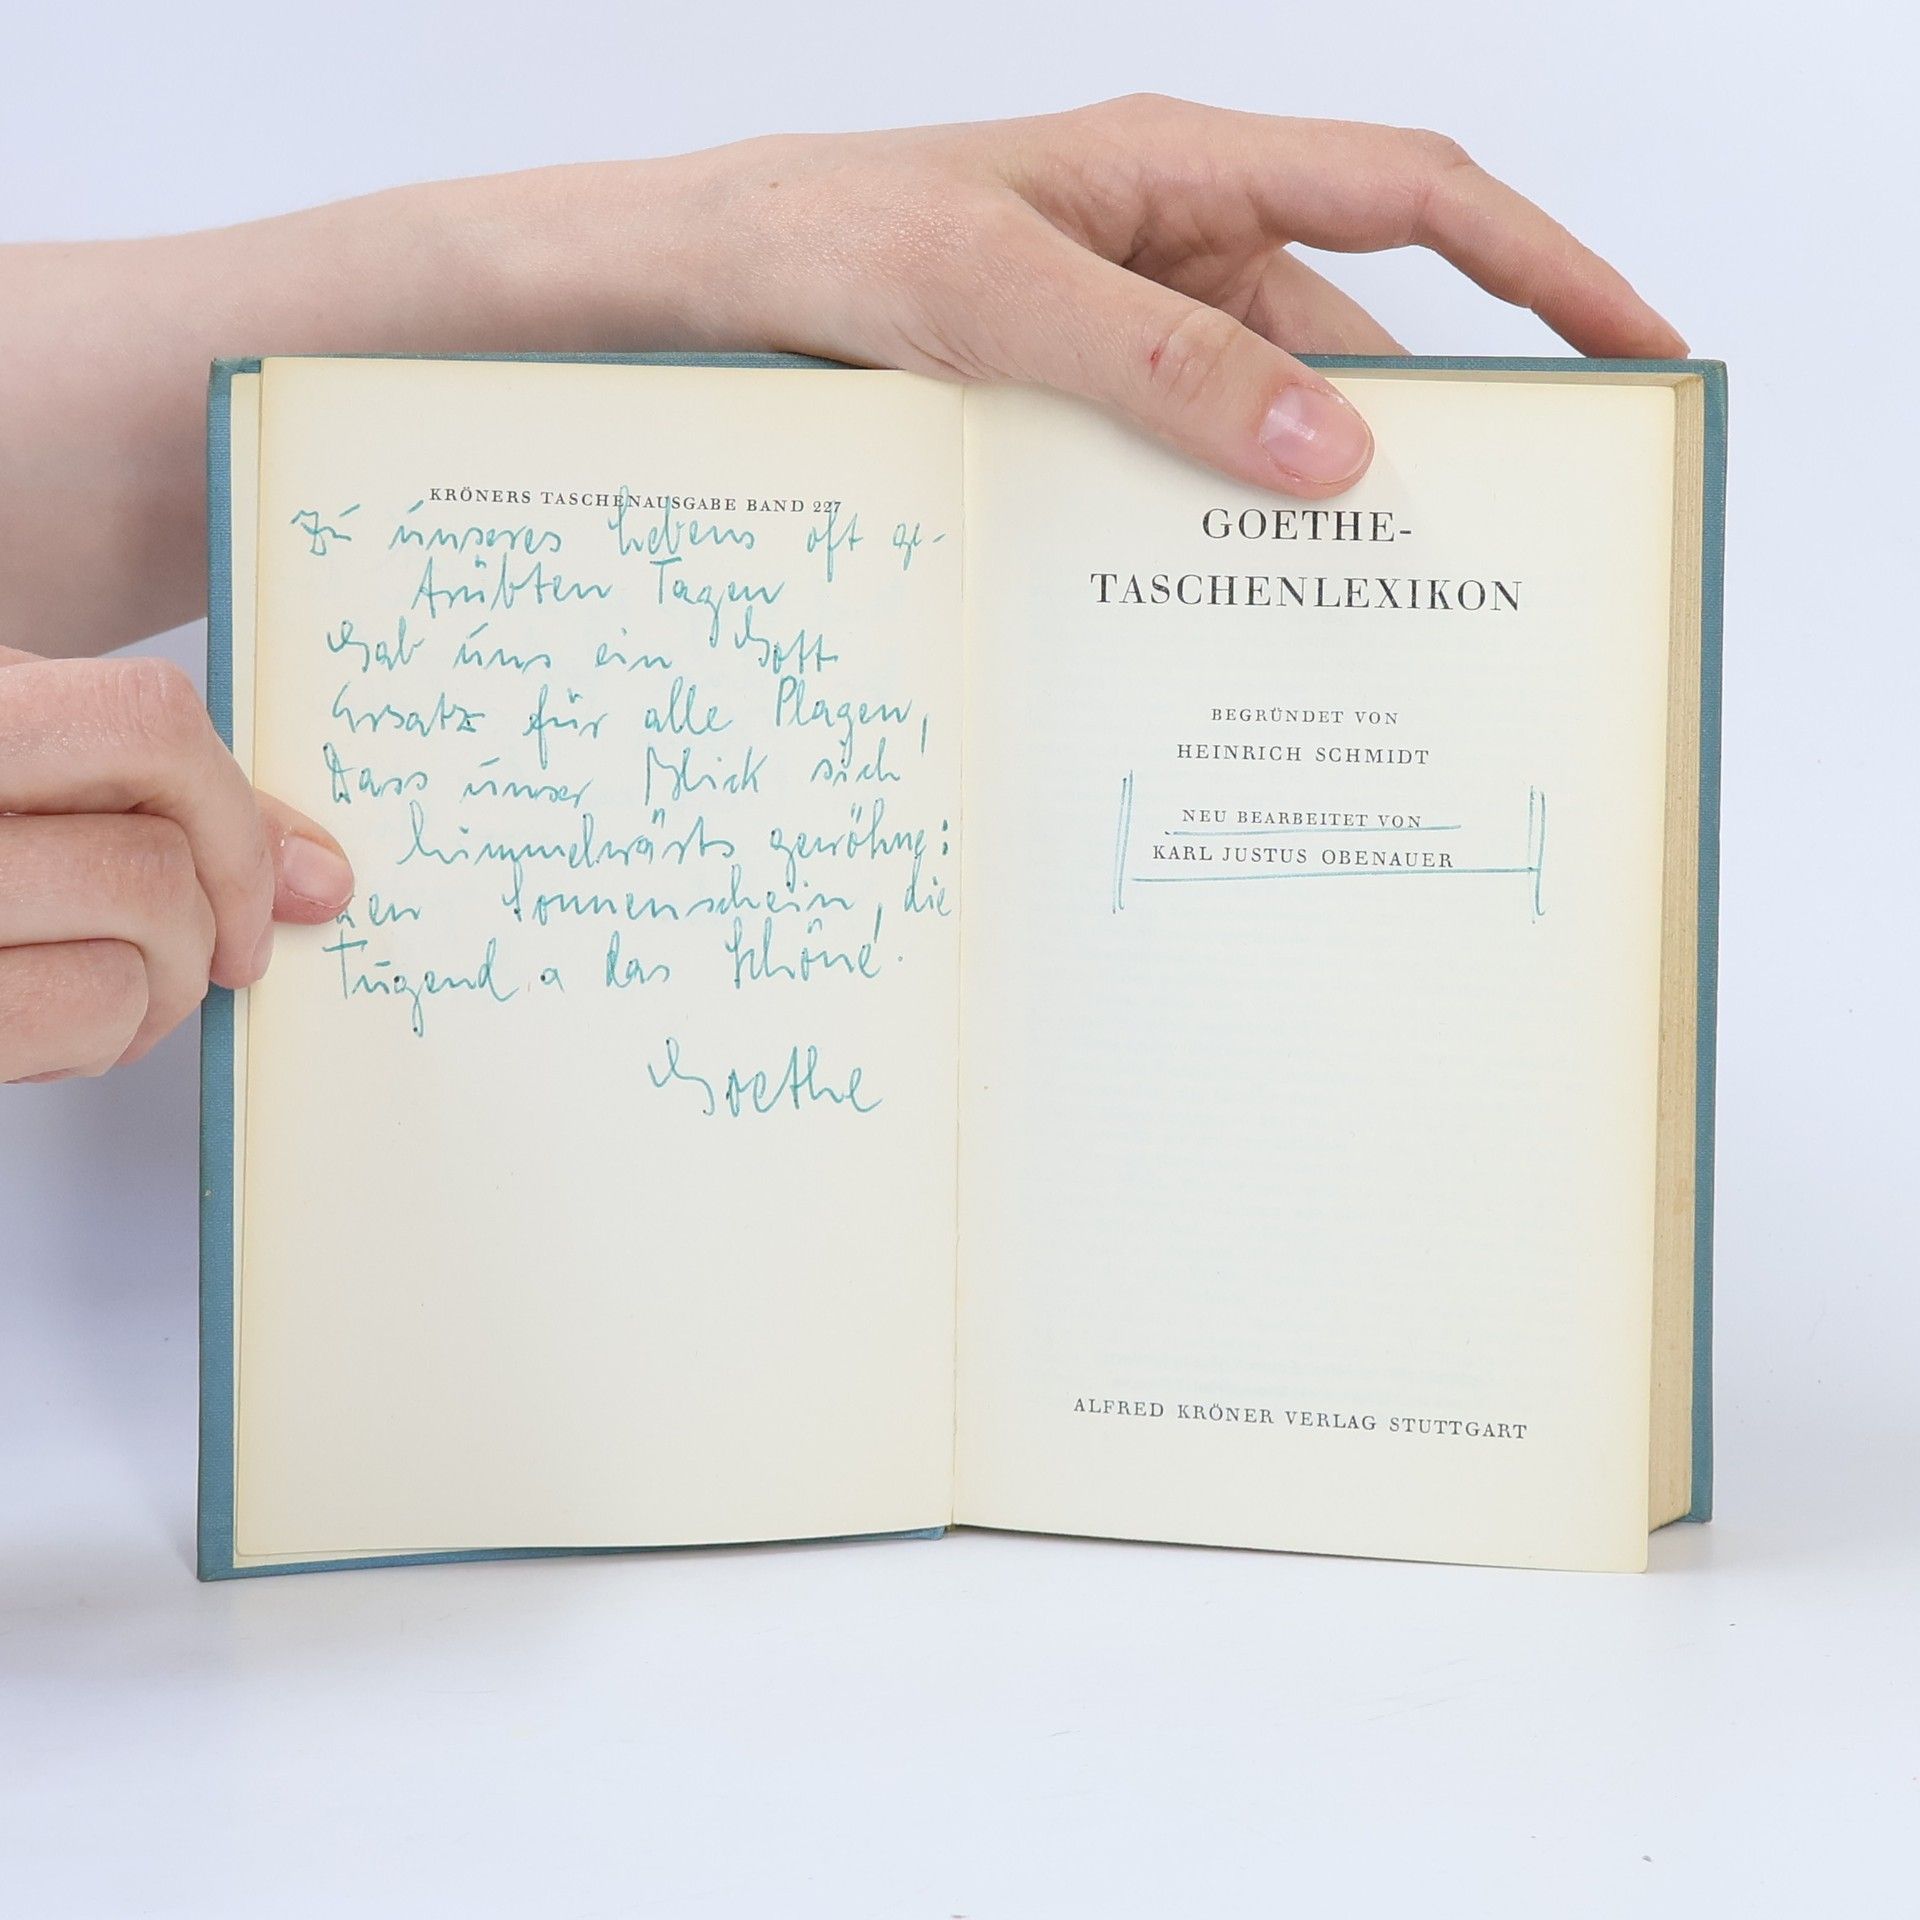 KRÖNERS TASCHENAUSGABE BAND 227
Zu unseres Lebens oft ge-
trübten Tagen
Gab uns ein Gott
Ersatz für alle Plagen,
Dass unser Blick sich
himmelwärts gewöhne:
Den Sonnenschein, die
Tugend a das Schöne.
Goethe
GOETHE-
TASCHENLEXIKON
BEGRÜNDET VON
HEINRICH SCHMIDT
NEU BEARBEITET VON
KARL JUSTUS OBENAUER
ALFRED KRÖNER VERLAG STUTTGART